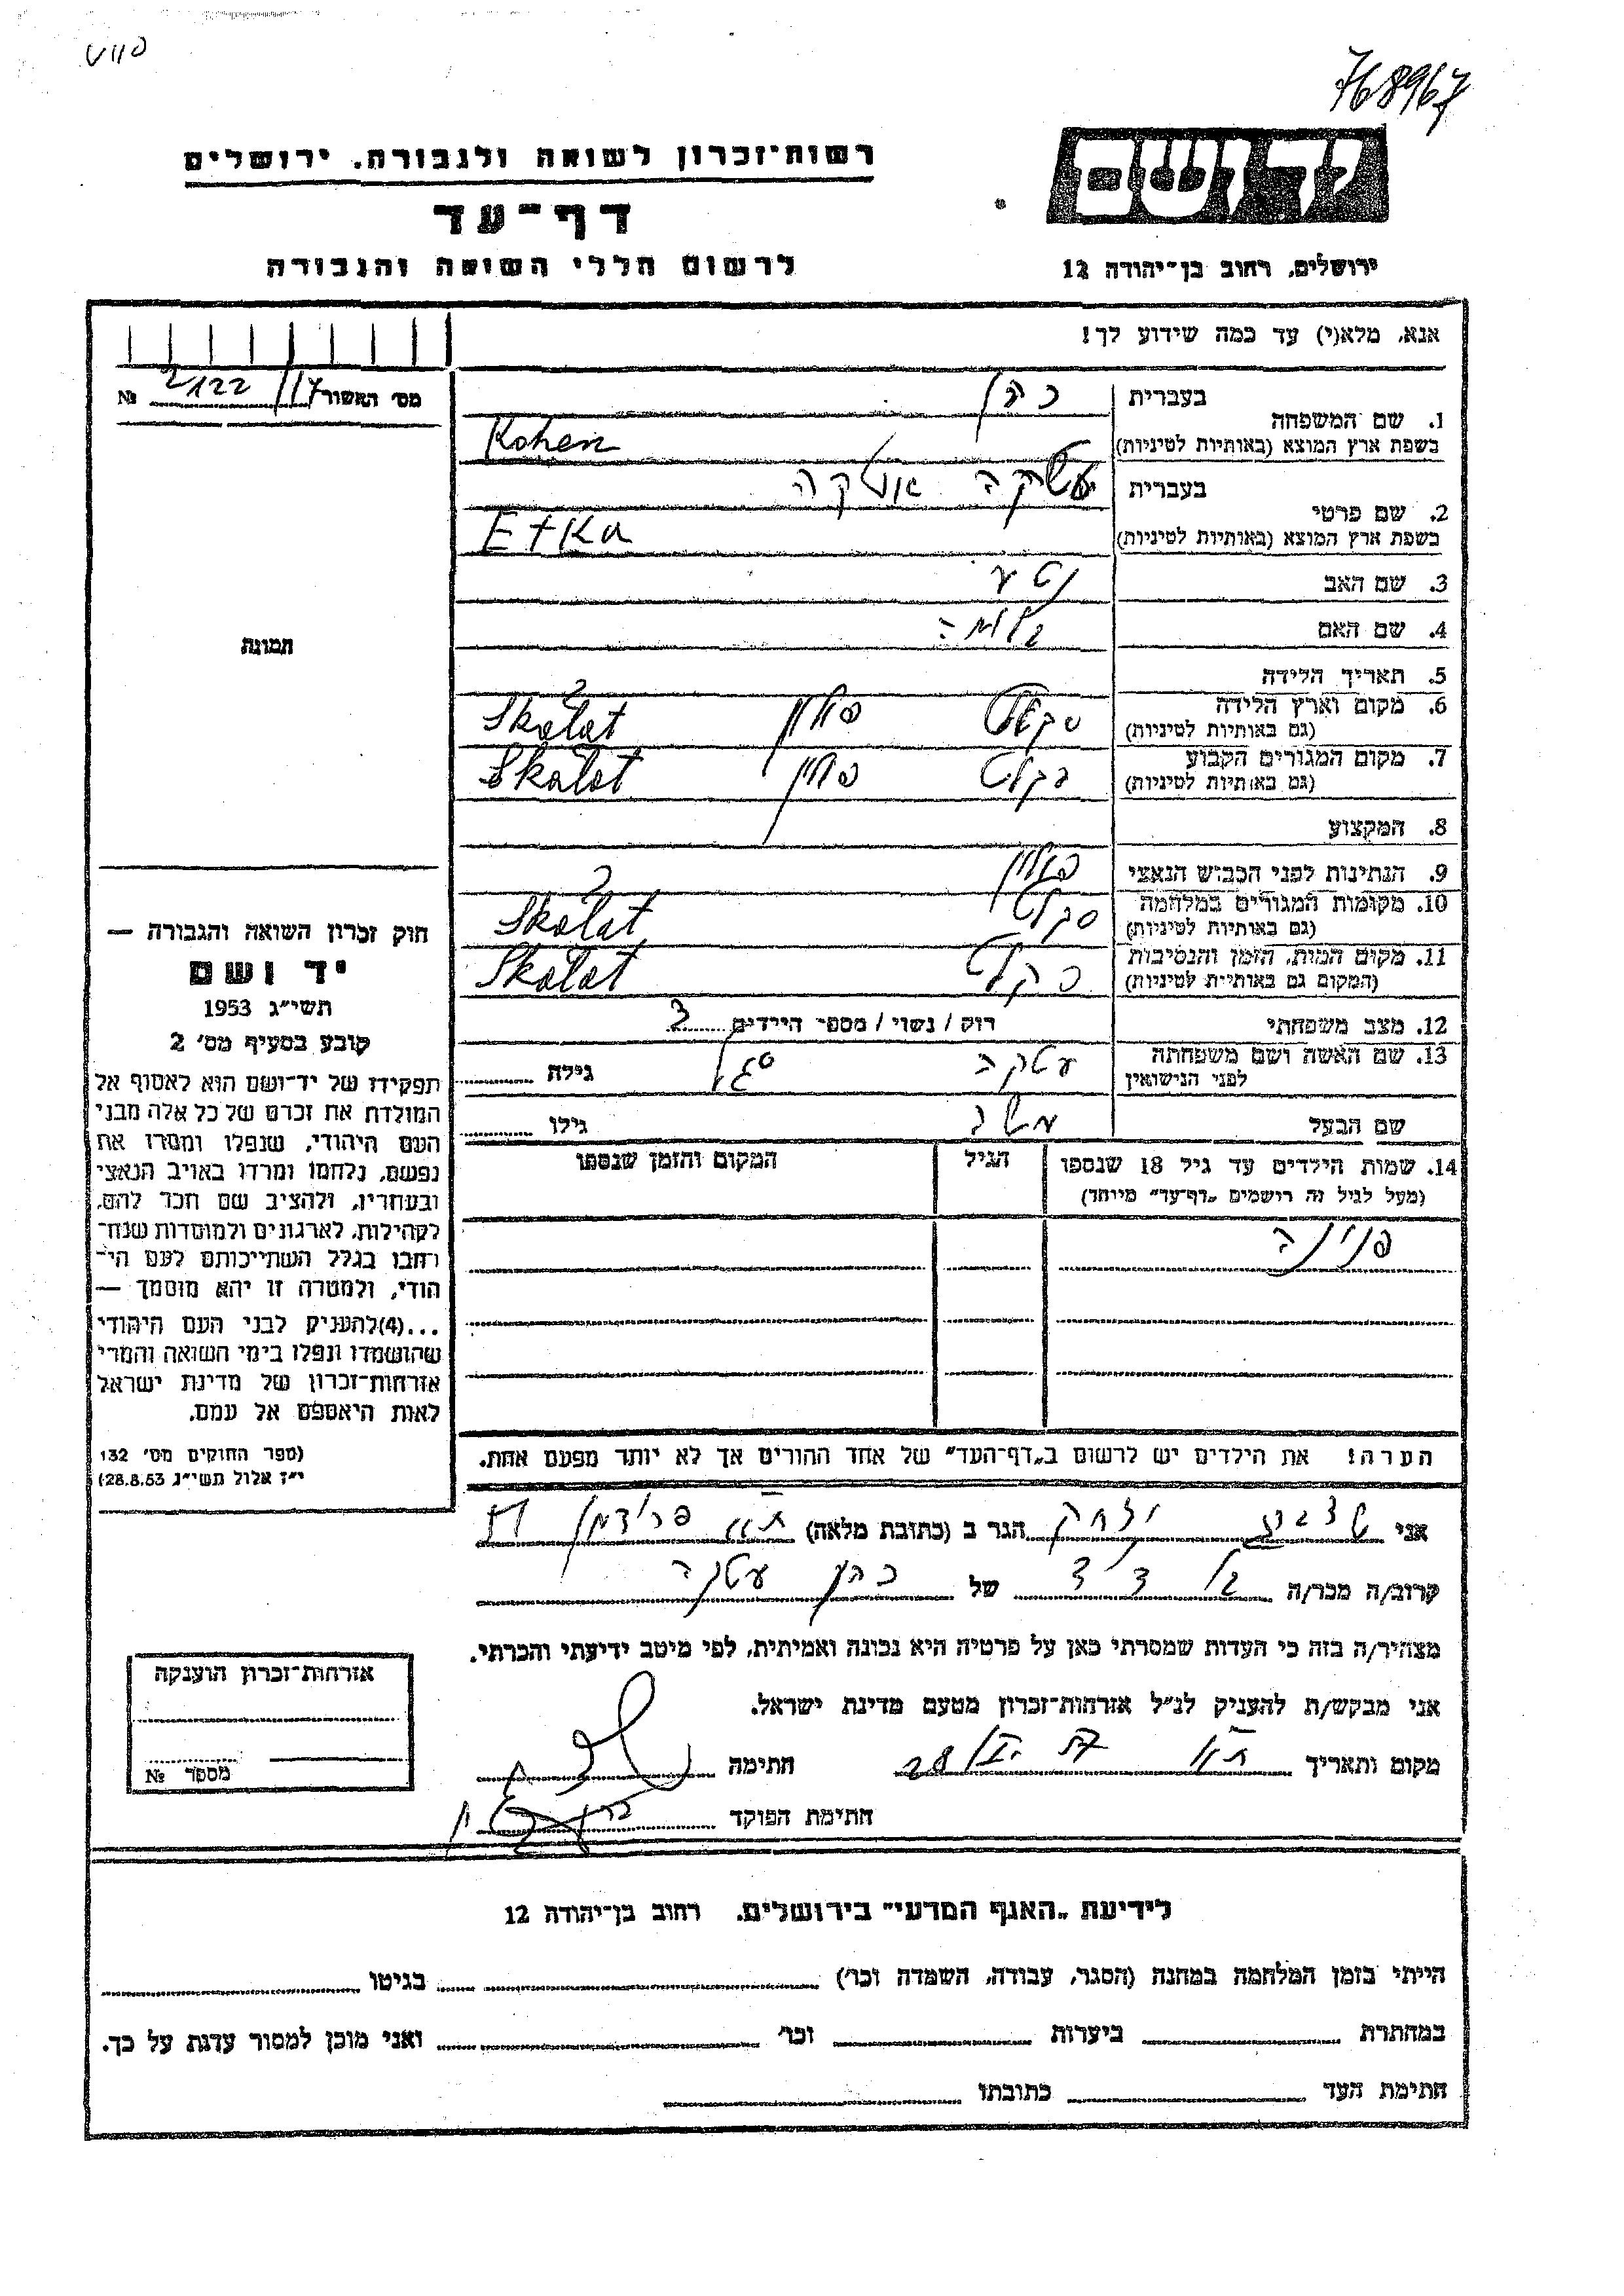 768967
רשות־זכרון לשואה ולגבורה. ירושלים
יד ושם
דף־עד
לרשום חללי השואה והגבורה
ירושלים, רחוב בן־יהודה 12
אנא, מלא(י) עד כמה שידוע לך!
מס׳ האשור 2122/117 №
1. שם המשפחה
בעברית כהן
בשפת ארץ המוצא (באותיות לטיניות) Kohen
2. שם פרטי
בעברית אטקה
בשפת ארץ המוצא (באותיות לטיניות) Etka
3. שם האב נטע
4. שם האם
5. תאריך הלידה
6. מקום וארץ הלידה סקלט פולין Skałat
(גם באותיות לטיניות)
7. מקום המגורים הקבוע סקלט פולין Skałat
(גם באותיות לטיניות)
8. המקצוע
9. הנתינות לפני הכבוש הנאצי פולין
10. מקומות המגורים במלחמה סקלט Skałat
(גם באותיות לטיניות)
11. מקום המות, הזמן והנסיבות סקלט Skałat
(המקום גם באותיות לטיניות)
12. מצב משפחתי רוק / נשוי / מספר הילדים
13. שם האשה ושם משפחתה עטקה גילה
לפני הנישואין
שם הבעל משה גילו
14. שמות הילדים עד גיל 18 שנספו הגיל המקום והזמן שנספו
(מעל לגיל זה רושמים „דף־עד” מיוחד)
פנינה
הערה! את הילדים יש לרשום ב„דף־העד” של אחד ההורים אך לא יותר מפעם אחת.
תמונה
חוק זכרון השואה והגבורה —
יד ושם
תשי״ג 1953
קובע בסעיף מס׳ 2
תפקידו של יד־ושם הוא לאסוף אל
המולדת את זכרם של כל אלה מבני
העם היהודי, שנפלו ומסרו את
נפשם, נלחמו ומרדו באויב הנאצי
ובעוזריו, ולהציב שם וזכר להם,
לקהילות, לארגונים ולמוסדות שנח־
רחבו בגלל השתייכותם לעם הי־
הודי, ולמטרה זו יהא מוסמך —
...(4)להעניק לבני העם היהודי
שהושמדו ונפלו בימי השואה והמרי
אזרחות־זכרון של מדינת ישראל
לאות היאספם אל עמם.
(ספר החוקים מס׳ 132
י״ז אלול תשי״ג 28.8.53)
אני יצחק הגר ב (כתובת מלאה) פרידמן
קרוב/ה מכר/ה בן דד של כהן עטקה
מצהיר/ה בזה כי העדות שמסרתי כאן על פרטיה היא נכונה ואמיתית, לפי מיטב ידיעתי והכרתי.
אני מבקש/ת להעניק לנ״ל אזרחות־זכרון מטעם מדינת ישראל.
מקום ותאריך חתימה
חתימת הפוקד
אזרחות־זכרון הוענקה
מספר №
לידיעת „האגף המדעי” בירושלים. רחוב בן־יהודה 12
הייתי בזמן המלחמה במחנה (הסגר, עבודה, השמדה וכו׳) בגיטו
במחתרת ביערות וכו׳ ואני מוכן למסור עדות על כך.
חתימת העד כתובתו